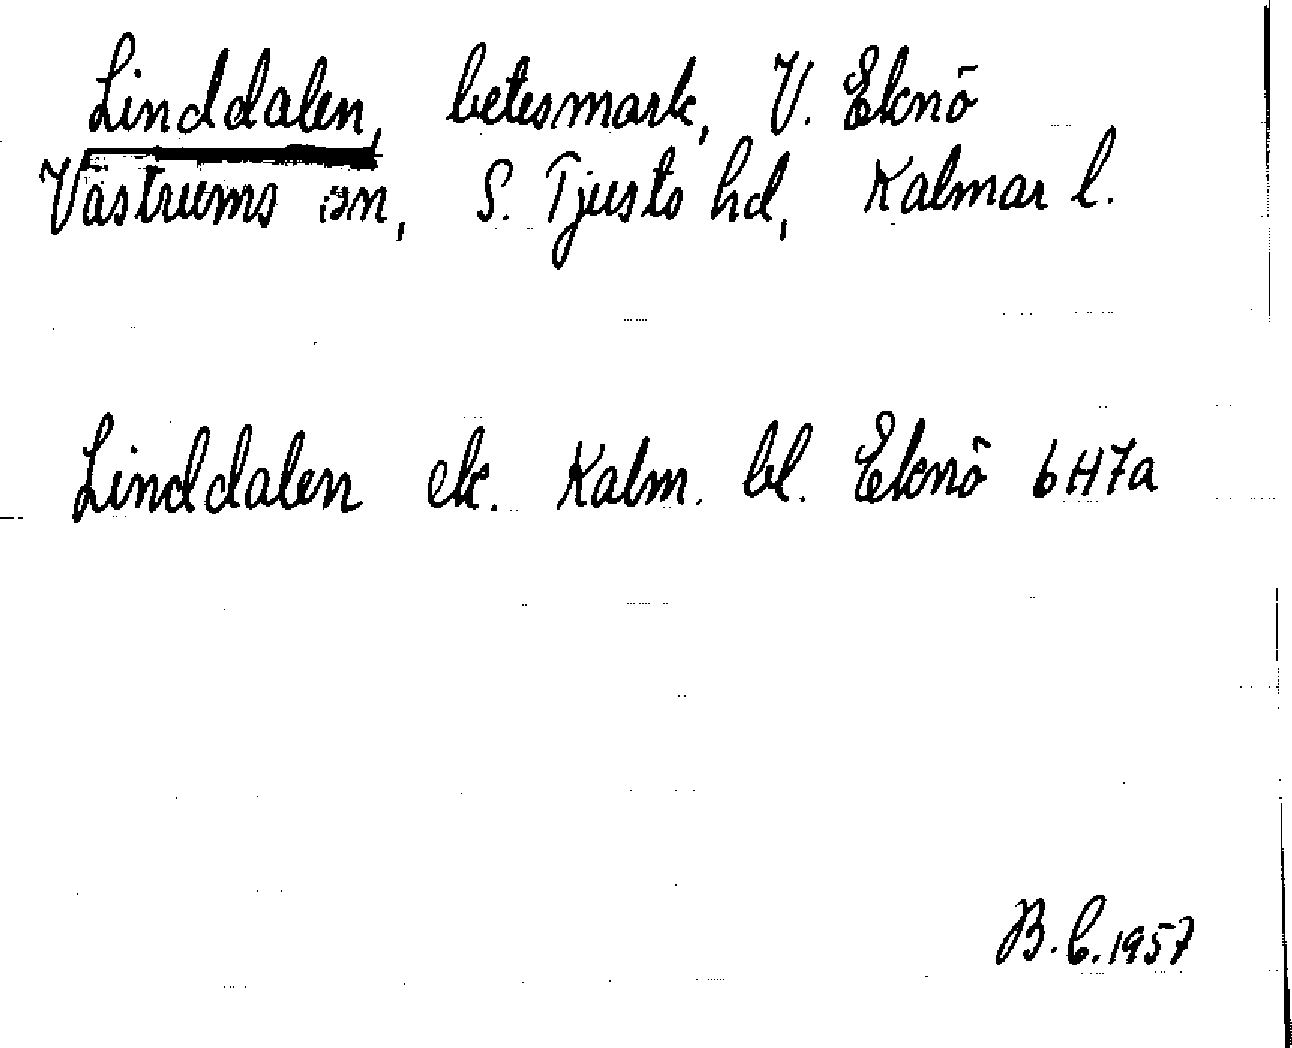 Linddalen, betesmark, V. Eknö
Västrums sn, S. Tjusts hd, Kalmar l.
Linddalen ek. Kalm. bl. Eknö 6H7a
B.C. 1957